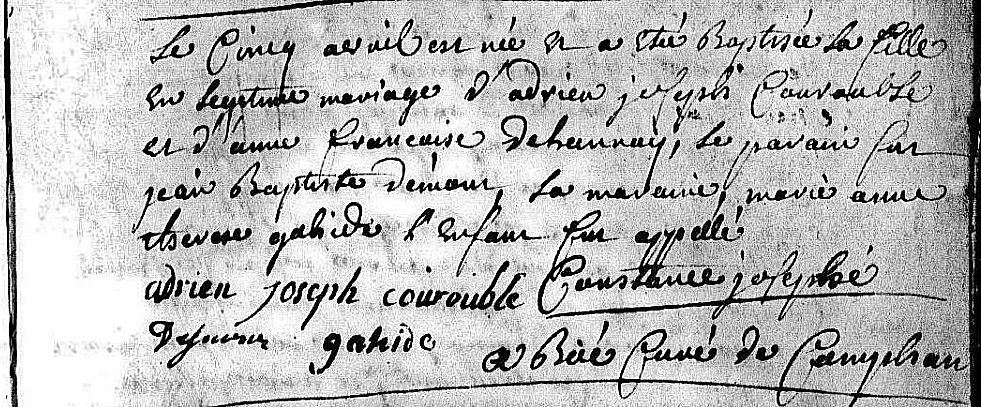 Le Cincq avril est née et a été Baptisée la fille
en legitime mariage d'adrien joseph Courouble
et d'anne francoise Dehannay, le parain fut
jean Baptiste demont, la maraine, marie anne
therese gahide l'enfant fut appellé
adrien joseph courouble Constance josephé
gahide
Curé de Camphan